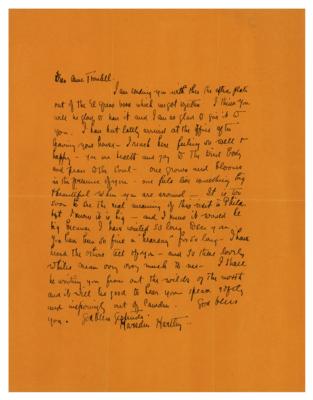 Dear Anne Traubel:
I am sending you with this the extra plate
out of the El Greco book which we got together I think you
will be glad to have it and I am as glad to give it to
you. I have but lately arrived at the office after
leaving your house – I reach here feeling so well &
happy – you are health and joy to the tired body
and to the soul – one grows and blooms
in the presence of you – one feels like something big
when you are around – It is too
soon to see the real meaning of this visit to Phila
but I know it is big – and I knew it would be
big because I have waited so long
has been so fine a for so long – I have
read the others all of you – and so these lovely
whiles mean very very much to me – I shall
be writing you from out the wilds of the north
and it will be good to hear you speak softly
and inspiringly out of Camden. God bless
you.
Marsden Hartley